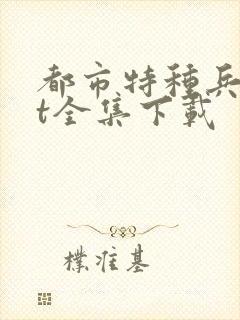 都市特種兵
t全集下載
樸准基